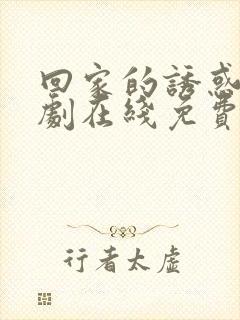 回家的誘惑
劇在綫免費
行者太虛